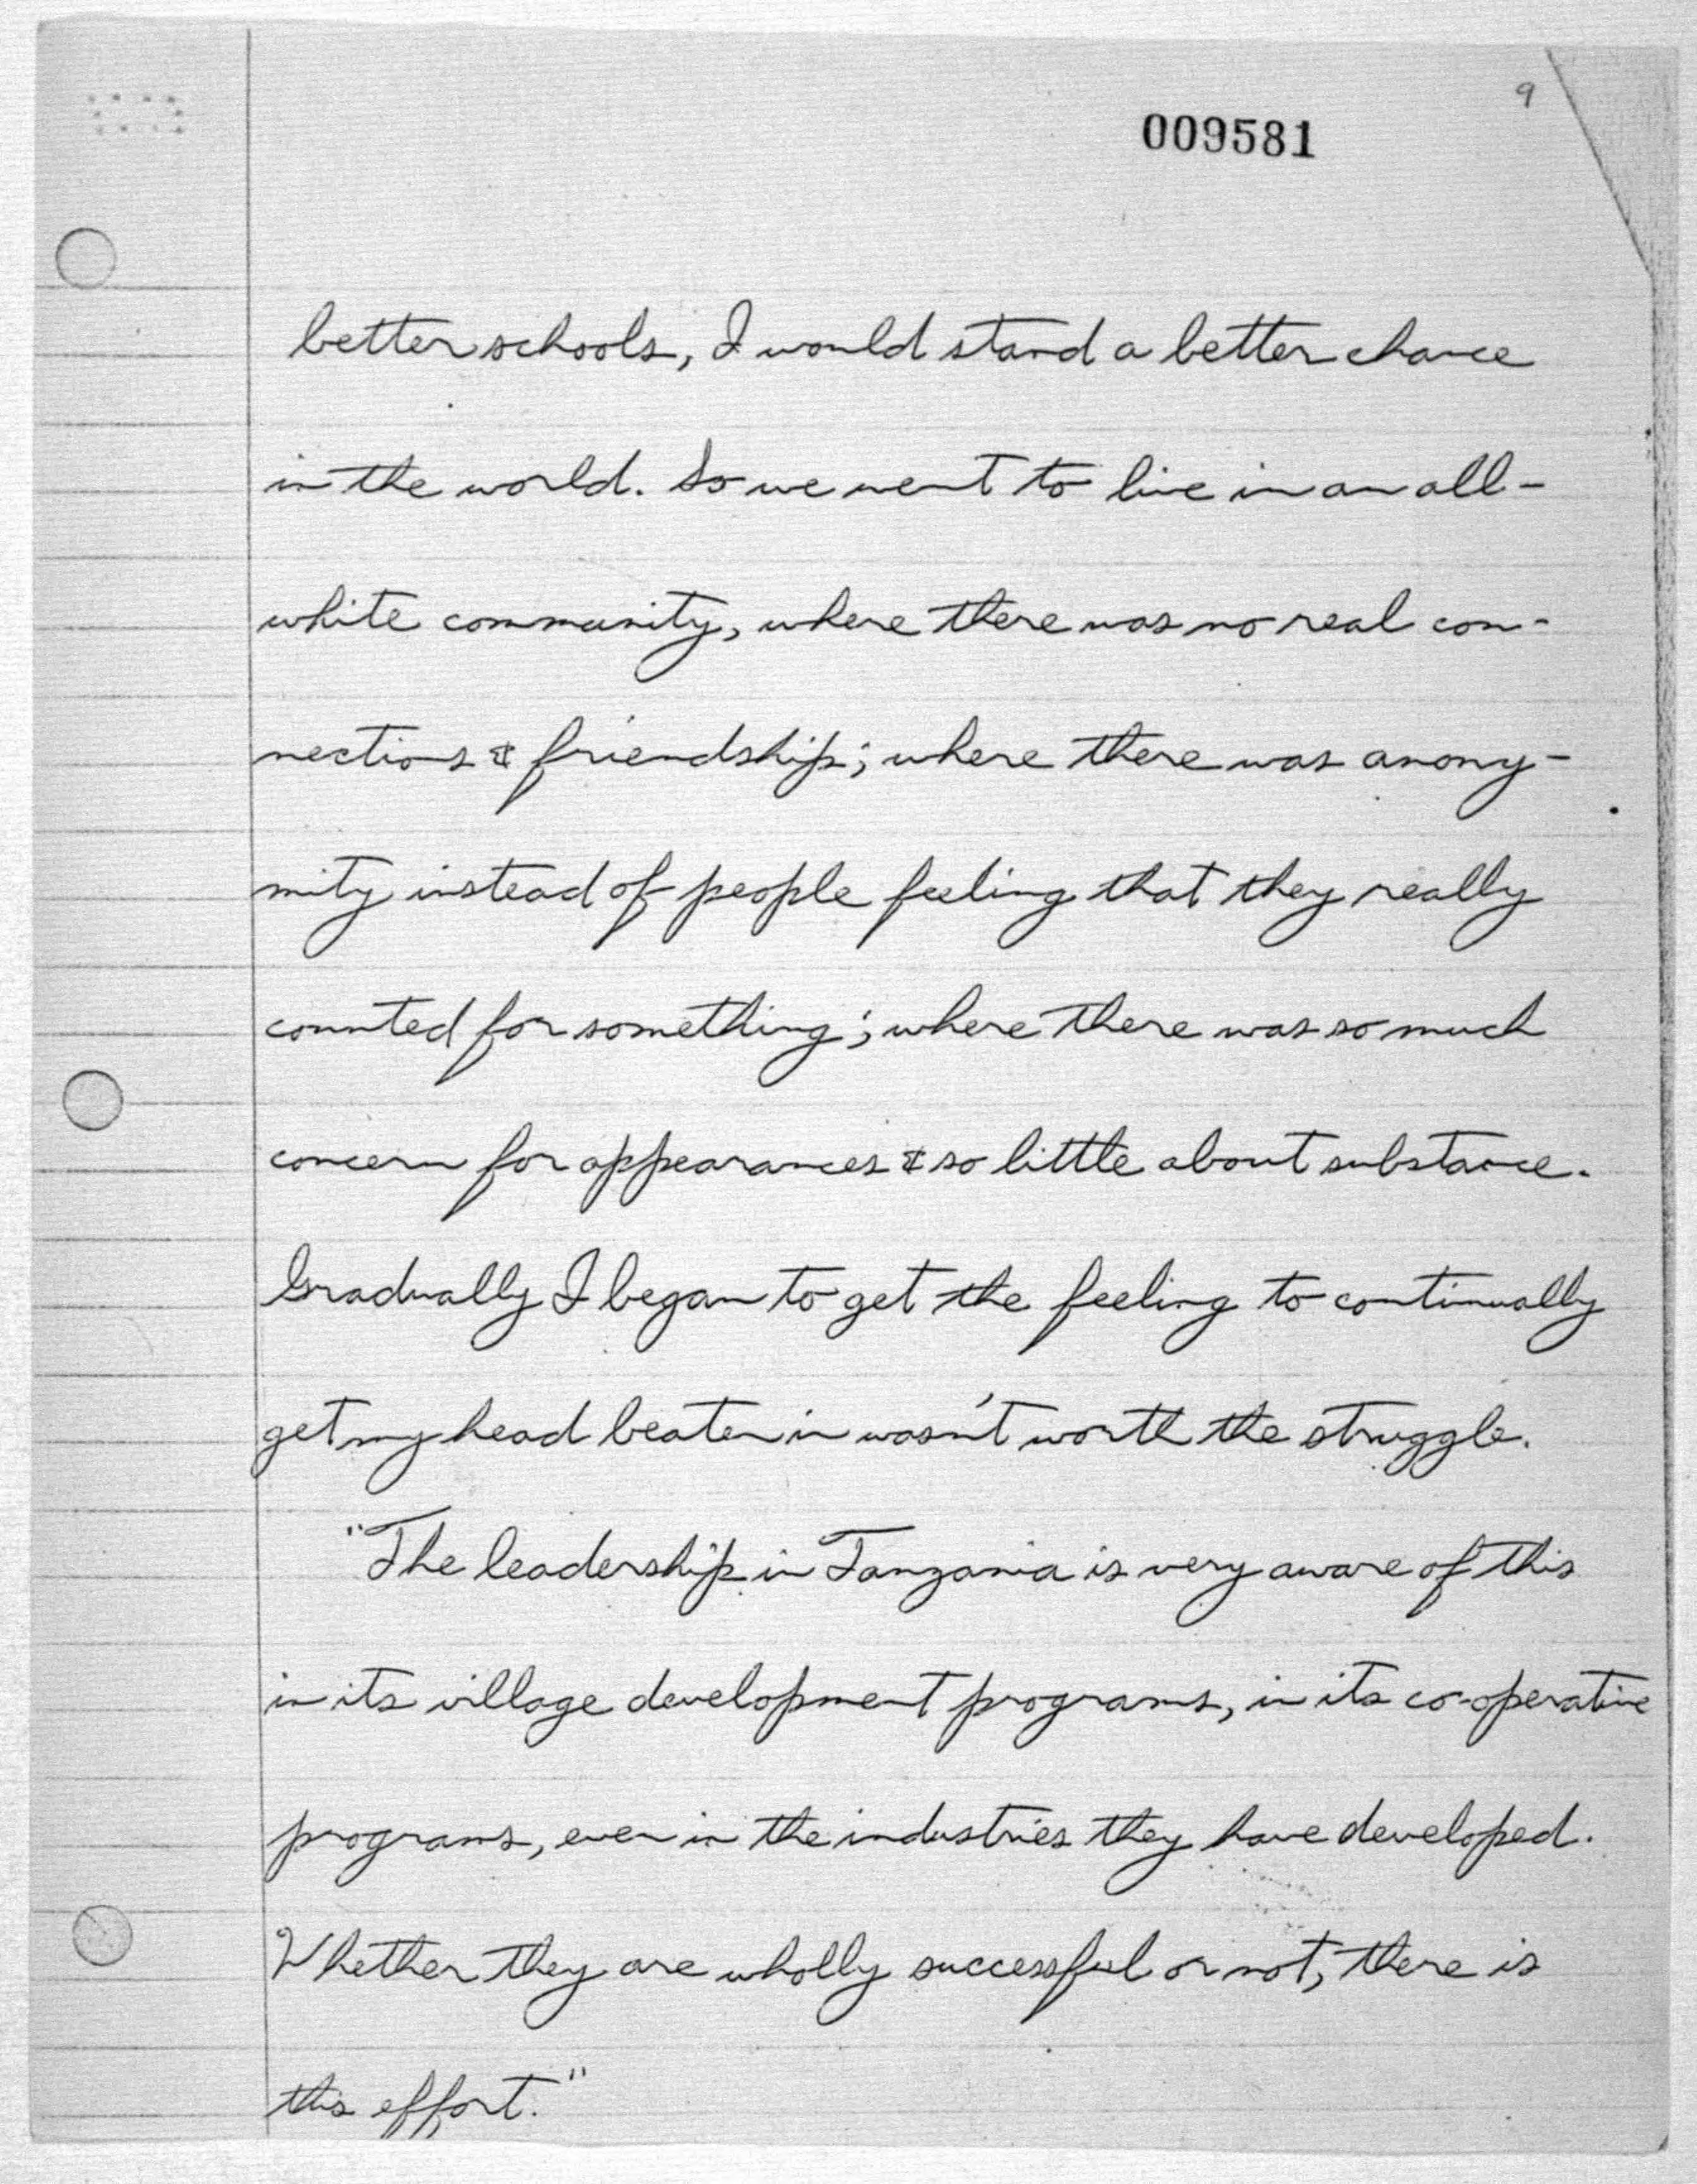 9
009581
better schools, I would stand a better chance
in the world. So we went to live in an all-
white community, where there was no real con-
nections & friendship; where there was anony-
mity instead of people feeling that they really
counted for something; where there was so much
concern for appearances & so little about substance.
Gradually I began to get the feeling to continually
get my head beaten in wasn't worth the struggle.
"The leadership in Tanzania is very aware of this
in its village development programs, in its co-operative
programs, even in the industries they have developed.
Whether they are wholly successful or not, there is
this effort."